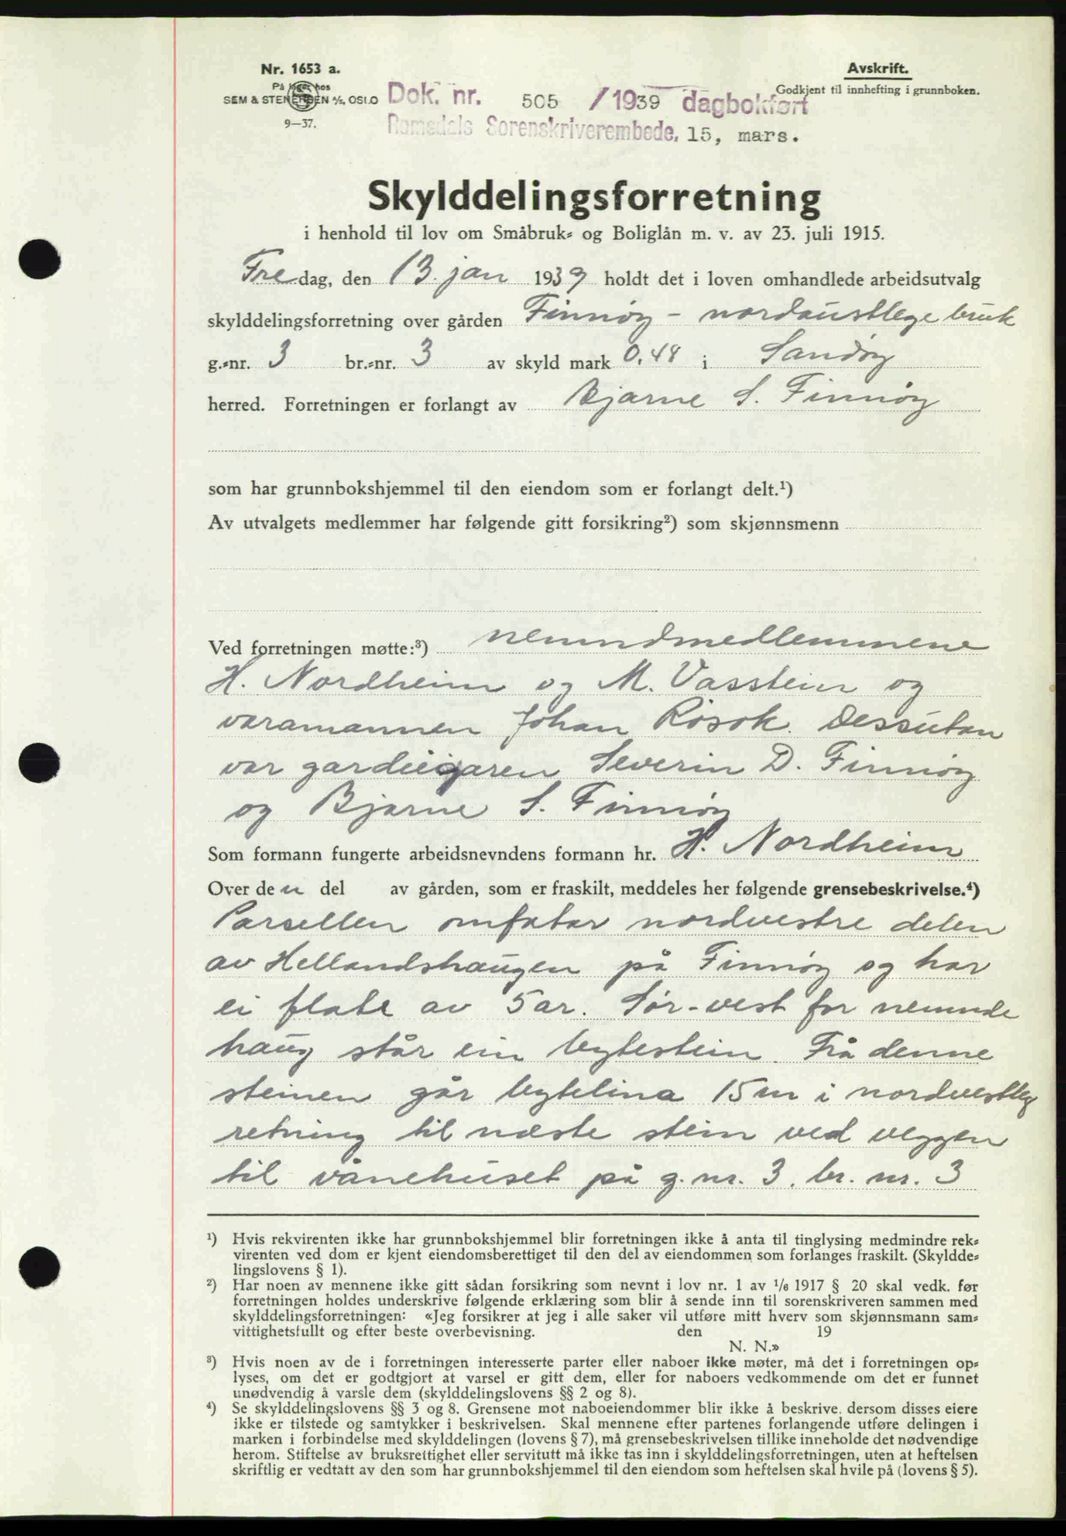 Nr. 1653 a.
På lager hos
SEM & STENERSEN A/S, OSLO
9—37.
Avskrift.
Godkjent til innhefting i grunnboken.
Dok. nr. 505 /1939 dagbokført
Romsdals Sorenskriverembede, 15, mars.
Skylddelingsforretning
i henhold til lov om Småbruk- og Boliglån m. v. av 23. juli 1915.
Fredag, den 13. jan 1939 holdt det i loven omhandlede arbeidsutvalg
skylddelingsforretning over gården Finnøy - nordaustlege bruk
g.-nr. 3 br.-nr. 3 av skyld mark 0,48 i Sandøy
herred. Forretningen er forlangt av Bjarne S. Finnøy
som har grunnbokshjemmel til den eiendom som er forlangt delt.¹)
Av utvalgets medlemmer har følgende gitt forsikring²) som skjønnsmenn
Ved forretningen møtte:³) nemndmedlemmene
H. Nordheim og M. Vasstein og
varamannen Johan Røsok. Dessutan
var gardeigaren Severin D. Finnøy
og Bjarne S. Finnøy
Som formann fungerte arbeidsnevndens formann hr. H. Nordheim
Over den del av gården, som er fraskilt, meddeles her følgende grensebeskrivelse.⁴)
Parsellen omfatar nordvestre delen
av Hellandshaugen på Finnøy og har
ei flate av 5 ar. Sør-vest for nemnde
haug står ein bytestein. Frå denne
steinen går bytelina 15 m i nordvestleg
retning til næste stein ved veggen
til vånehuset på g. nr. 3. br. nr. 3
¹) Hvis rekvirenten ikke har grunnbokshjemmel blir forretningen ikke å anta til tinglysing medmindre rek-
virenten ved dom er kjent eiendomsberettiget til den del av eiendommen som forlanges fraskilt. (Skyldde-
lingslovens § 1).
²) Har noen av mennene ikke gitt sådan forsikring som nevnt i lov nr. 1 av 1/6 1917 § 20 skal vedk. før
forretningen holdes underskrive følgende erklæring som blir å sende inn til sorenskriveren sammen med
skylddelingsforretningen: «Jeg forsikrer at jeg i alle saker vil utføre mitt hverv som skjønnsmann sam-
vittighetsfullt og efter beste overbevisning. den 19
N. N.»
³) Hvis noen av de i forretningen interesserte parter eller naboer ikke møter, må det i forretningen op-
lyses, om det er godtgjort at varsel er gitt dem, eller for naboers vedkommende om det er funnet
unødvendig å varsle dem (skylddelingslovens §§ 2 og 8).
⁴) Se skylddelingslovens §§ 3 og 8. Grensene mot naboeiendommer blir ikke å beskrive. dersom disses eiere
ikke er tilstede og samtykker i beskrivelsen. Skal mennene efter partenes forlangende utføre delingen i
marken i forbindelse med skylddelingen (lovens § 7), må grensebeskrivelsen tillike inneholde det nødvendige
herom. Stiftelse av bruksrettighet eller servitutt må ikke tas inn i skylddelingsforretningen, uten at heftelsen
skriftlig er vedtatt av den som har grunnbokshjemmel til den eiendom som heftelsen skal hvile på (lovens § 5).